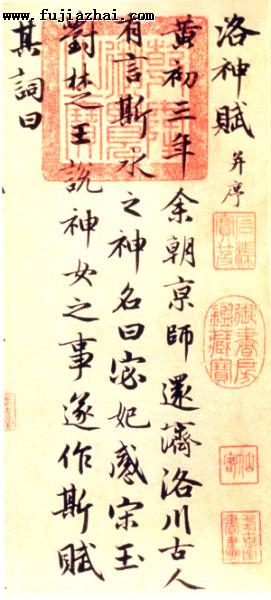 www.fujiazhai.com
洛神賦 并序
黄初三年余朝京師還濟洛川古人
有言斯水之神名曰宓妃感宋玉
對楚王說神女之事遂作斯賦
其詞曰
御書房鑑藏寶